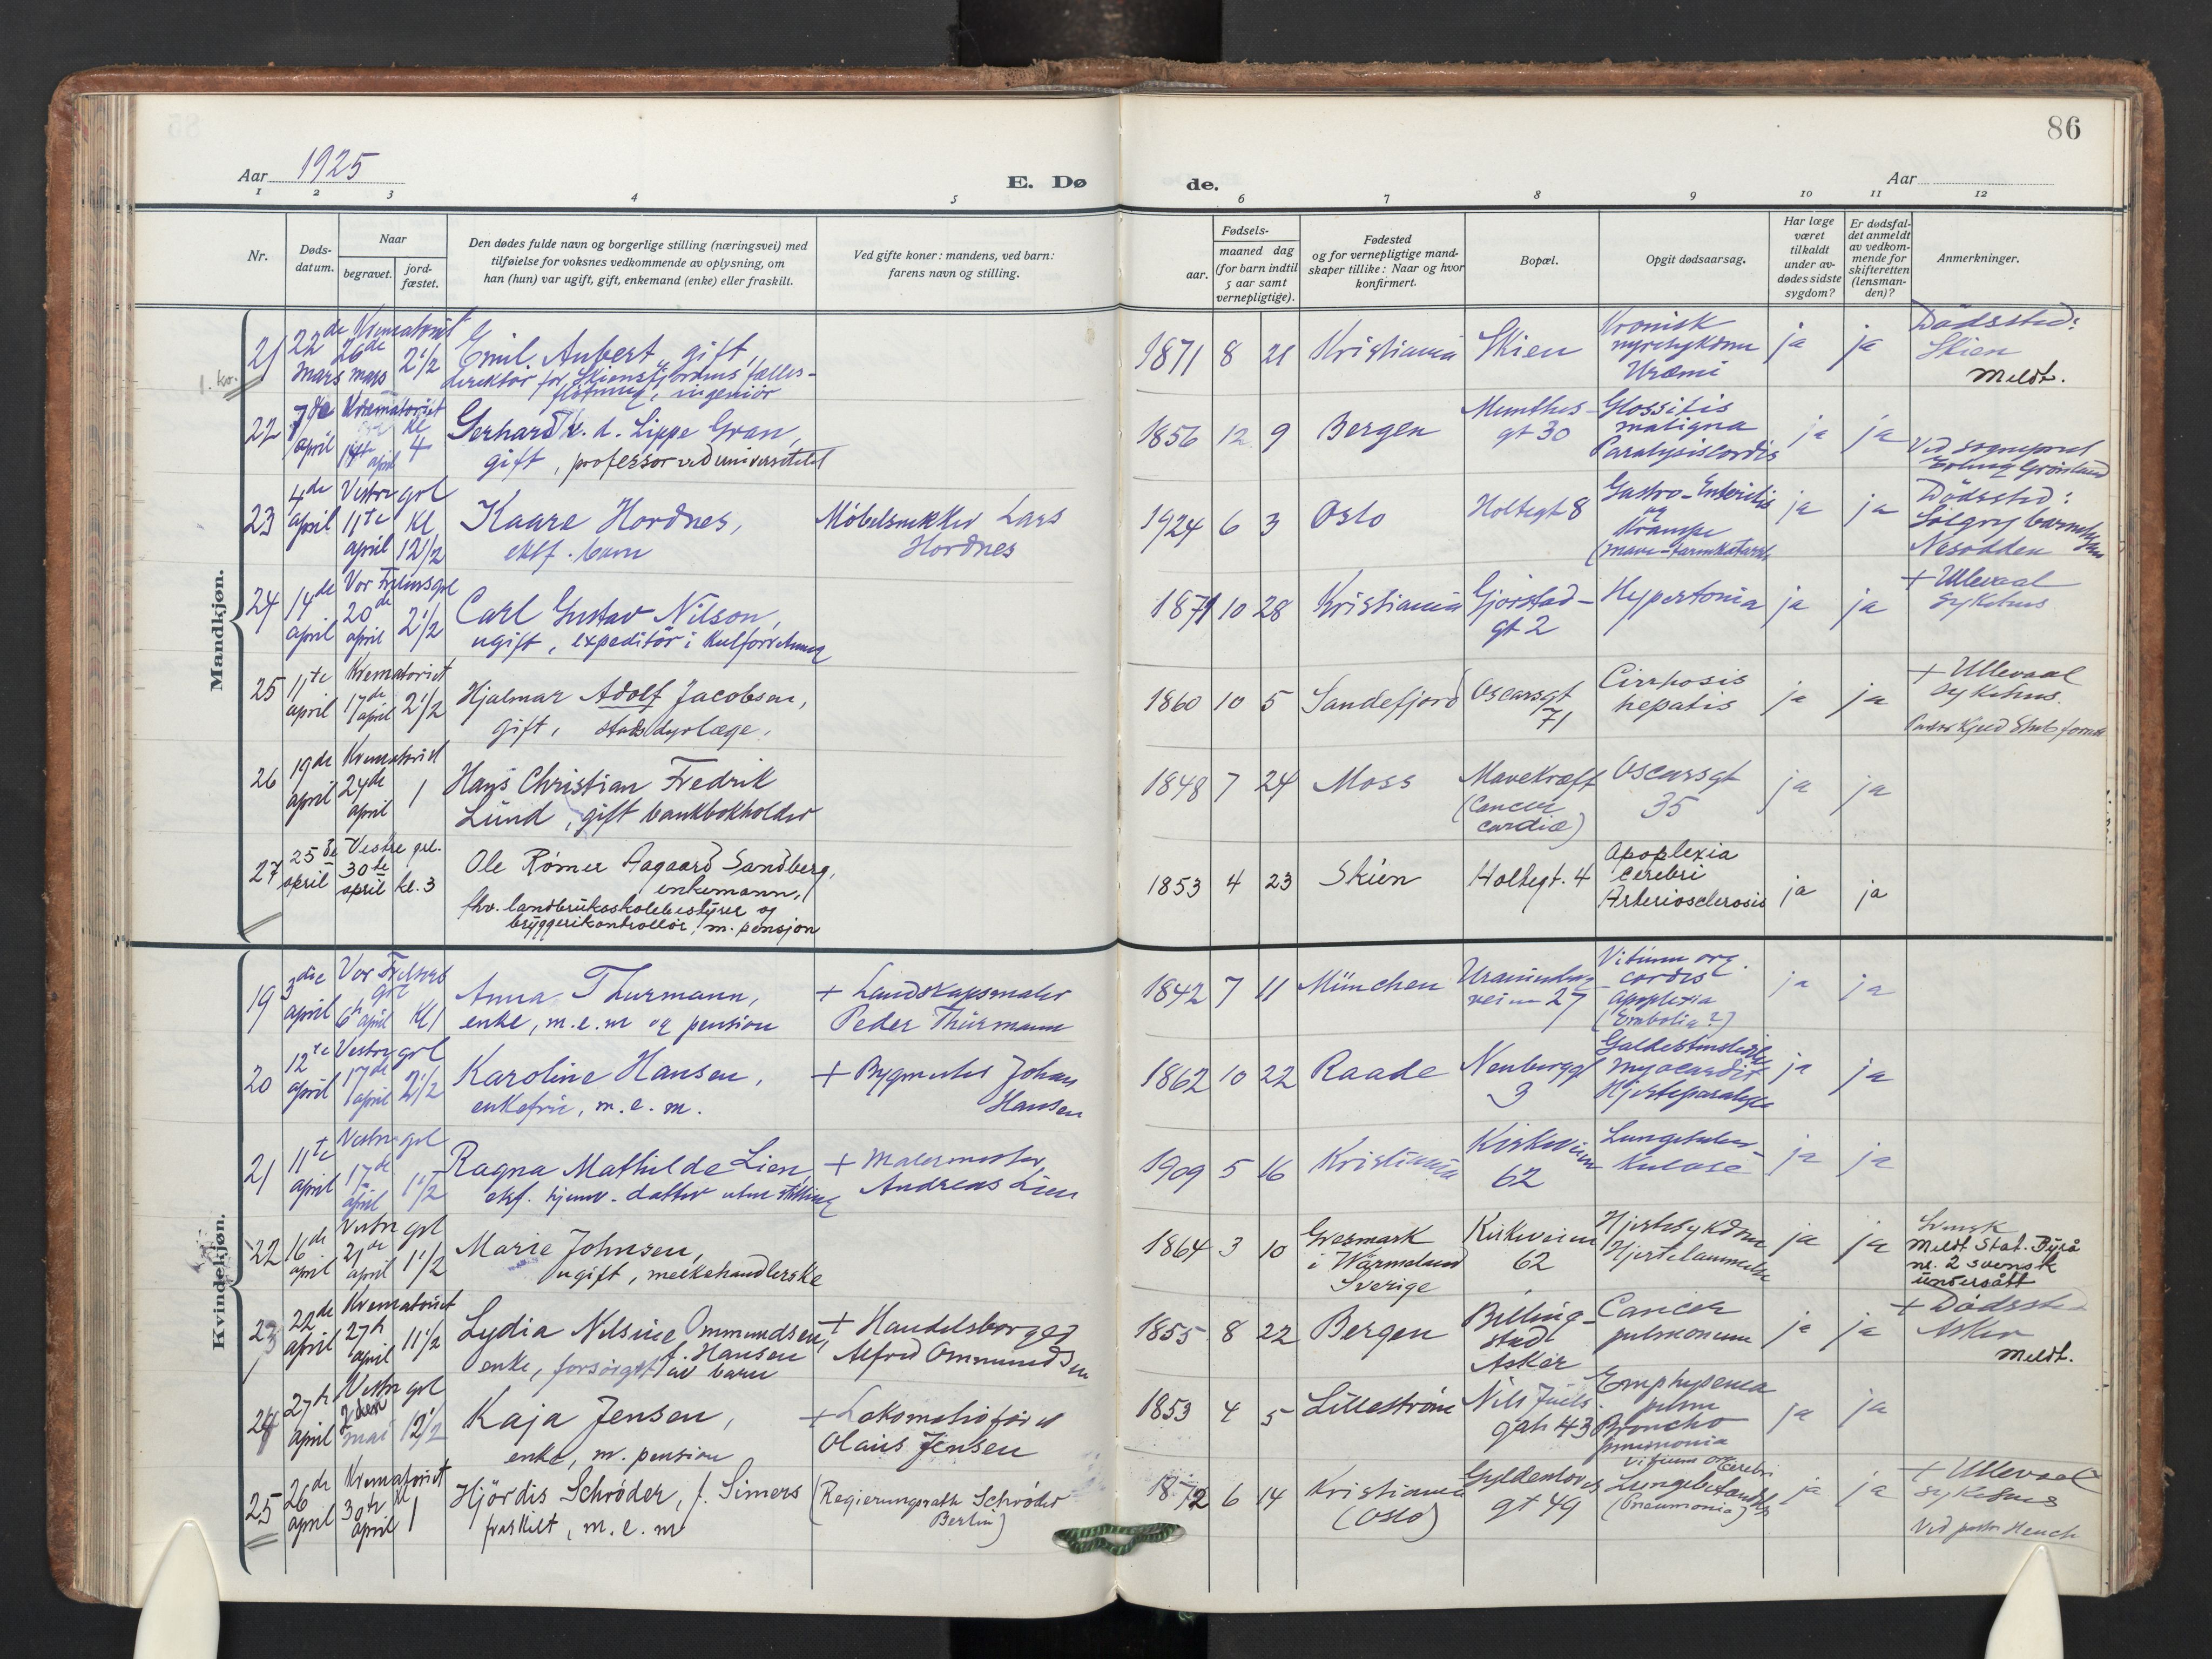 86
Aar 1925
E. Dø
de.
Aar
1 2 3 4 5 6 7 8 9 10 11 12
Nr.
Døds-
datum.
Naar
begravet.
jord-
fæstet.
Den dødes fulde navn og borgerlige stilling (næringsvei) med
tilføielse for voksnes vedkommende av oplysning, om
han (hun) var ugift, gift, enkemand (enke) eller fraskilt.
Ved gifte koner: mandens, ved barn:
farens navn og stilling.
Fødsels-
aar.
maaned dag
(for barn indtil
5 aar samt
vernepligtige).
Fødested
og for vernepligtige mand-
skaper tillike: Naar og hvor
konfirmert.
Bopæl.
Opgit dødsaarsag.
Har læge
været
tilkaldt
under av-
dødes sidste
sygdom?
Er dødsfal-
det anmeldt
av vedkom-
mende for
skifteretten
(lensman-
den)?
Anmerkninger.
Mandkjøn.
21 22de mars Krematoriet 26de mars 2 1/2
Emil Aubert, gift
direktör for Skiensfjordens fælles-
flötning, ingeniör
1871 8 21 Kristiania Skien
Kronisk
nyresykdom
Uræmi
ja ja
Dödssted:
Skien
Meldt.
1. kv.
22 7de april Krematoriet april kl 4
Gerhard v. d. Lippe Gran,
gift, professor ved universitetet
1856 12 9 Bergen
Munthes
gt 30
Glossitis
maligna
Paralysis cordis
ja ja
Ved sogneprest
Grönland
23 4de april Vestre grl 11te april kl 12 1/2
Kaare Hordnes,
ekt. barn
Möbelsnekker Lars
Hordnes
1924 6 3 Oslo Holtegt 8
Gastro-Enteritis
og
Krampe
(mave-tarmkatarrh
ja ja
Dödssted:
Solgry barnehjem
Nesodden
24 14de april Vor Frelsers grl 20de april 2 1/2
Carl Gustav Nilson,
ugift, expeditör i kulforretning
1871 10 28 Kristiania
Gjörstad-
gt 2
Hypertonia
ja ja
+ Ullevaal
sykehus
25 11te april Krematoriet 17de april 2 1/2
Hjalmar Adolf Jacobsen,
gift, stadsdyrlæge.
1860 10 5 Sandefjord
Oscarsgt
71
Cirrhosis
hepatis
ja ja
+ Ullevaal
sykehus.
Pastor Kjeld Stub
26 19de april Krematoriet 24de april 1
Hans Christian Fredrik
Lund, gift bankbokholder
1848 7 24 Moss
Mavekræft
(Cancer
cardiæ)
Oscarsgt
35
ja ja
27 25de april Vestre grl. 30te april kl. 3
Ole Rømer Aagaard Sandberg,
enkemann,
fhv. landbruksskolebestyrer og
bryggerikontrollør, m. pensjon
1853 4 23 Skien Holtegt. 4
Apoplexia
cerebri
Arteriosclerosis
ja ja
Kvindekjøn.
19 3die april Vor Frelsers grl 6te april kl 1
Anna Thurmann,
enke, m.e.m og pension
+ Landskapsmaler
Peder Thurmann
1842 7 11 München
Uranienborg
veien 27
Vitium org.
cordis
Apoplexia
(Embolia?)
ja ja
20 12te april Vestre grl 17de april 2 1/2
Karoline Hansen,
enkefru, m.e.m.
+ Bygmester Johan
Hansen
1862 10 22 Raade
Neuberggt
3
Galdestenslidelse
myocardit
Hjerteparalyse
ja ja
21 11te april Vestre grl 17de april 1 1/2
Ragna Mathilde Lien,
ekt. hjemv. datter uten stilling
+ Malermester
Andreas Lien
1909 5 16 Kristiania
Kirkeveien
62
Lungetuber-
kulose
ja ja
22 16de april Vestre grl 21de april 1 1/2
Marie Johnsen,
ugift, melkehandlerske
1864 3 10
Gresmark
i Wärmeland
Sverige
Kirkeveien
62
Hjertesykdom
Hjertelammelse
ja ja
Svensk
Meldt Stat. Byrå
nr. 2 svensk
undersått
23 22de april Krematoriet 27de april 11 1/2
Lydia Nilsine Ommundsen,
f. Hansen
enke, forsörget av barn
+ Handelsborger
Alfred Ommundsen
1855 8 22 Bergen
Billing-
stad
Asker
Cancer
pulmonum
ja ja
+ Dödssted
Asker
Meldt.
24 27de april Vestre grl 2den mai 12 1/2
Kaja Jensen,
enke, m. pension
+ Lokomotivförer
Olaus Jensen
1853 4 5 Lilleström
Nils Juels
gate 43
Emphysema
pulm
Broncho
pneumonia
ja ja
25 26de april Krematoriet 30te april kl 1
Hjördis Schröder, f. Simers
fraskilt, m.e.m
(Regierungsrath Schröder
Berlin)
1872 6 14
Kristiania
(Oslo)
Gyldenlöves
gt 49
Vitium cerebri
Lungebetændelse
(Pneumonia)
ja ja
+ Ullevaal
sykehus
Ved pastor Hench